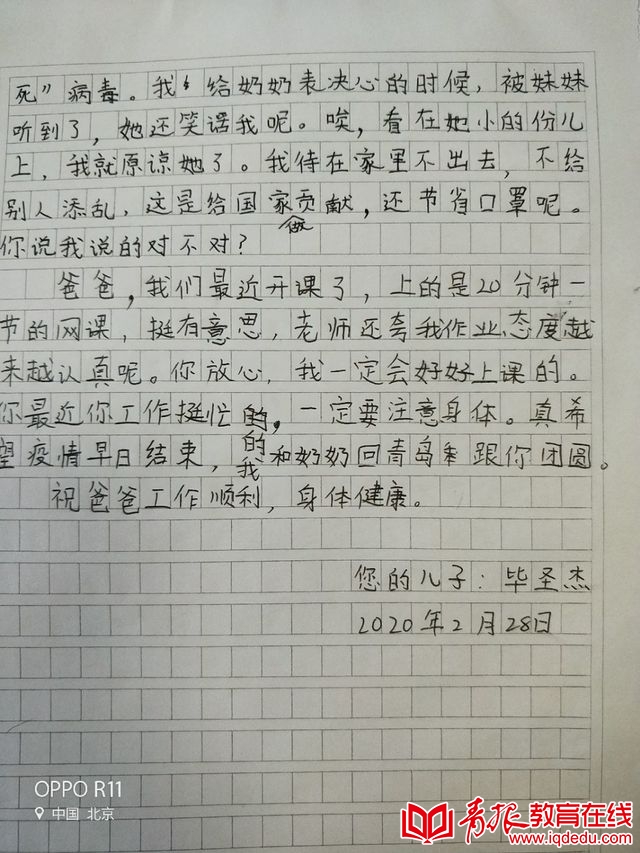 死”病毒。我给奶奶表决心的时候，被妹妹
听到了，她还笑话我呢。唉，看在她小的份儿
上，我就原谅她了。我待在家里不出去，不给
别人添乱，这是给国家做贡献，还节省口罩呢。
你说我说的对不对？
爸爸，我们最近开课了，上的是20分钟一
节的网课，挺有意思，老师还夸我作业态度越
来越认真呢。你放心，我一定会好好上课的。
你最近你工作挺忙的，一定要注意身体。真希
望疫情早日结束，我和奶奶回青岛跟你团圆。
祝爸爸工作顺利，身体健康。
您的儿子：毕圣杰
2020年2月28日
OPPO R11
中国 北京
青报教育在线
www.iqdedu.com